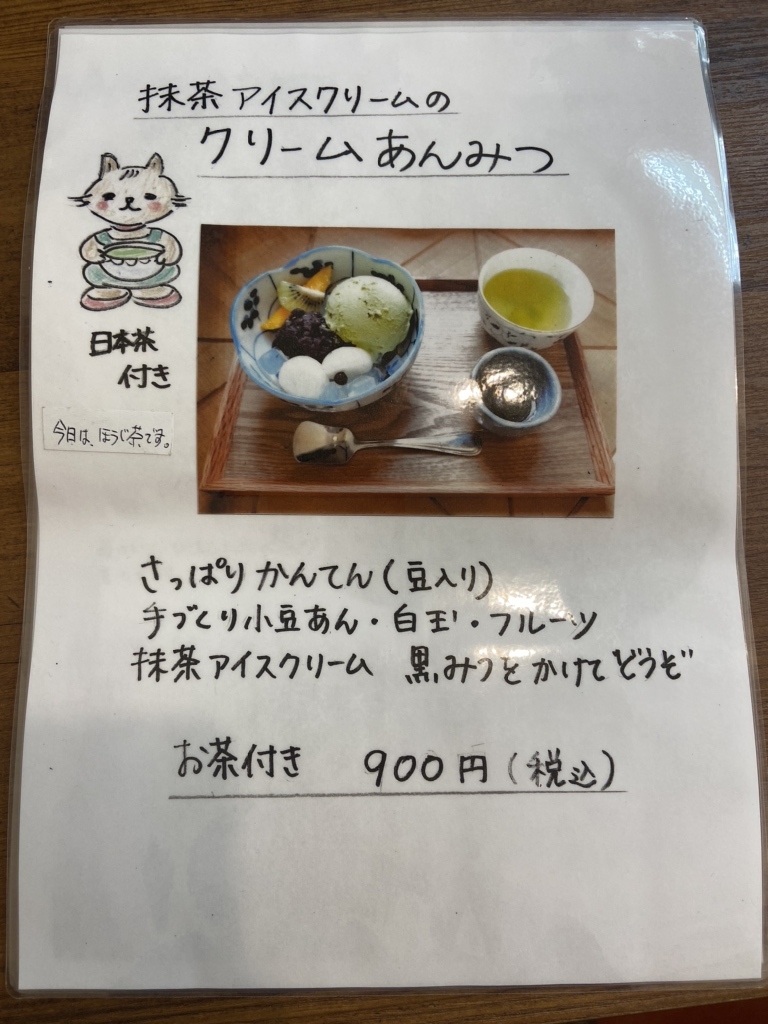 抹茶アイスクリームの
クリームあんみつ
日本茶
付き
今日は、ほうじ茶です。
さっぱりかんてん(豆入り)
手づくり小豆あん・白玉・フルーツ
抹茶アイスクリーム 黒みつをかけてどうぞ
お茶付き 900円(税込)